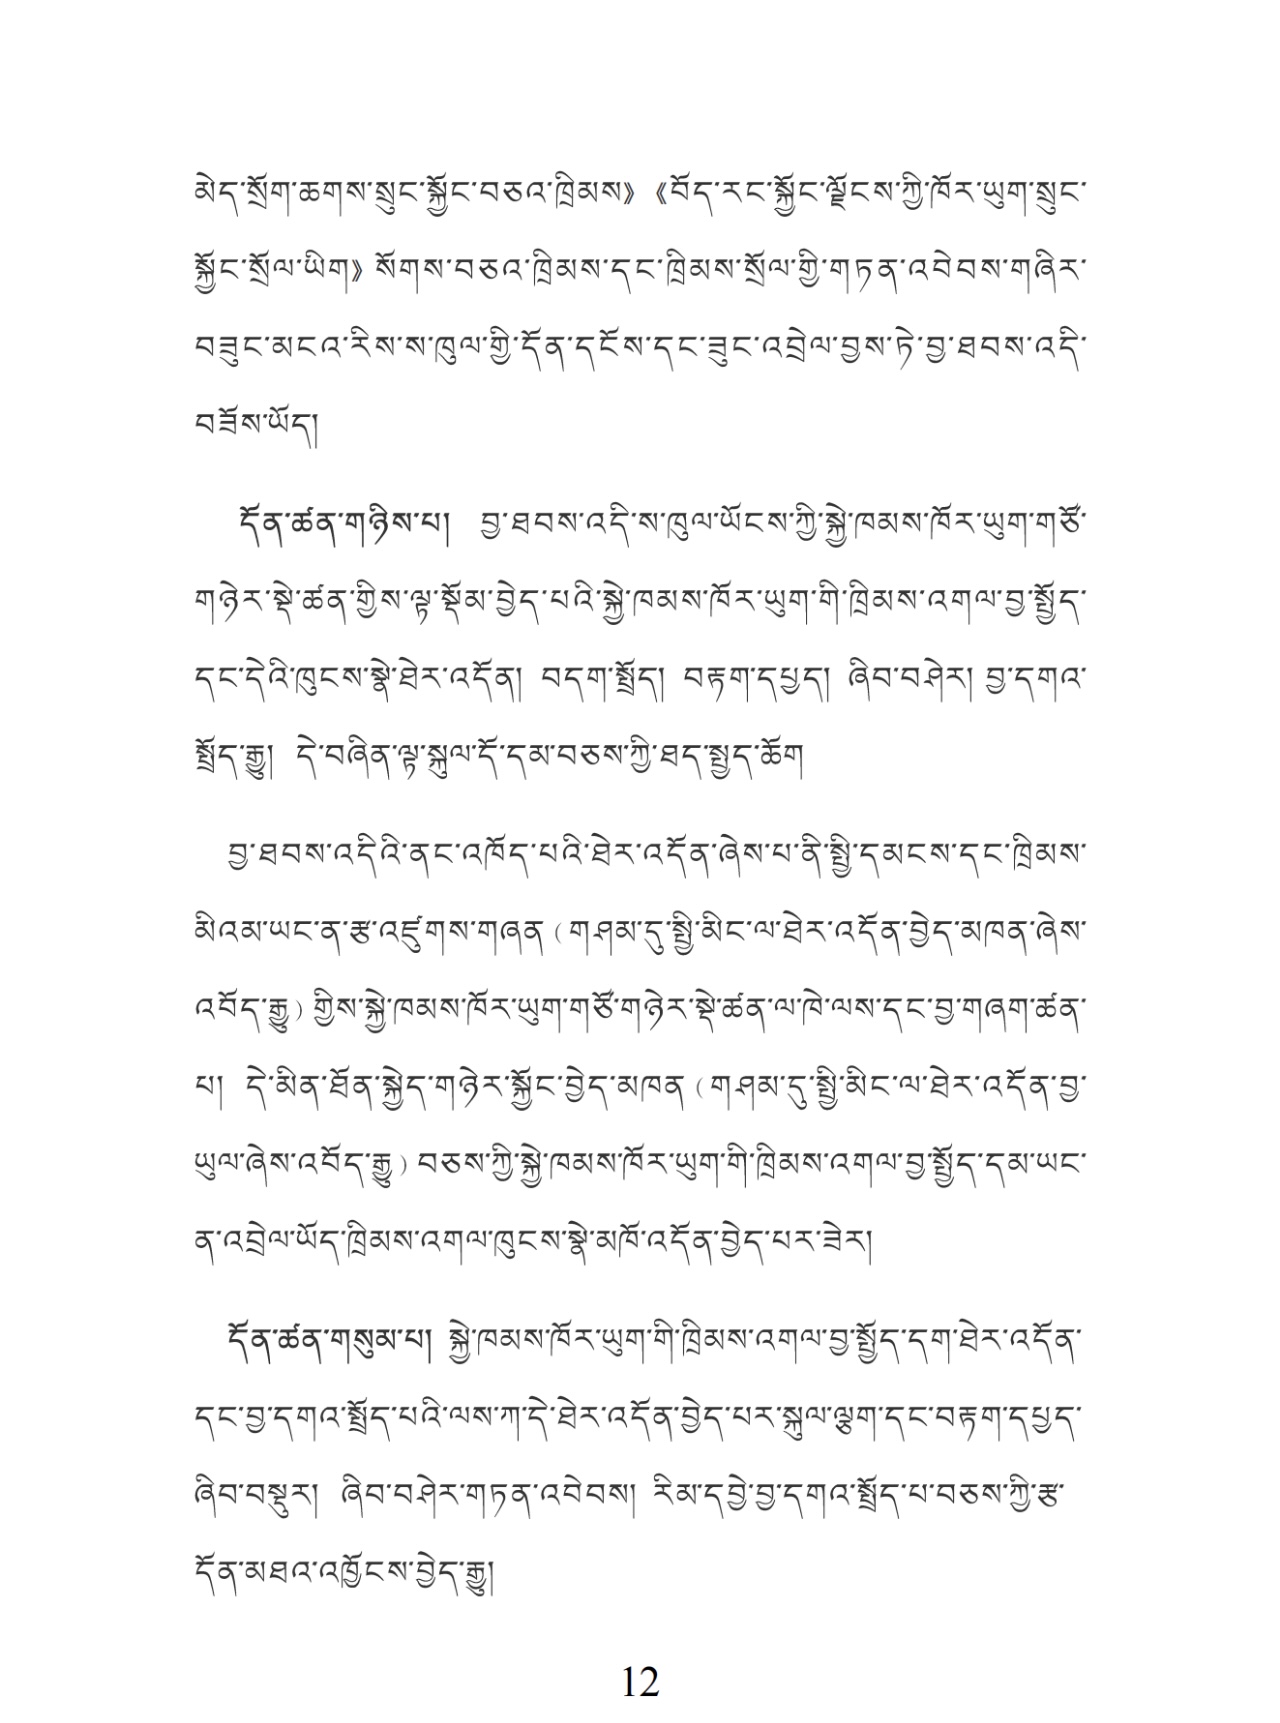 མེད་སྲོག་ཆགས་སྲུང་སྐྱོང་བཅའ་ཁྲིམས》《བོད་རང་སྐྱོང་ལྗོངས་ཀྱི་ཁོར་ཡུག་སྲུང་
སྐྱོང་སྲོལ་ཡིག》སོགས་བཅའ་ཁྲིམས་དང་ཁྲིམས་སྲོལ་གྱི་གཏན་འབེབས་གཞིར་
བཟུང་མངའ་རིས་ས་ཁུལ་གྱི་དོན་དངོས་དང་ཟུང་འབྲེལ་བྱས་ཏེ་བྱ་ཐབས་འདི་
བཟོས་ཡོད།
དོན་ཚན་གཉིས་པ། བྱ་ཐབས་འདི་ས་ཁུལ་ཡོངས་ཀྱི་སྐྱེ་ཁམས་ཁོར་ཡུག་གཙོ་
གཉེར་སྡེ་ཚན་གྱིས་ལྟ་སྡོམ་བྱེད་པའི་སྐྱེ་ཁམས་ཁོར་ཡུག་གི་ཁྲིམས་འགལ་བྱ་སྤྱོད་
དང་དེའི་ཁུངས་སྣེ་ཐེར་འདོན། བདག་སྤྲོད། བརྟག་དཔྱད། ཞིབ་བཤེར། བྱ་དགའ་
སྤྲོད་རྒྱུ། དེ་བཞིན་ལྟ་སྐུལ་དོ་དམ་བཅས་ཀྱི་ཐད་སྤྱད་ཆོག
བྱ་ཐབས་འདིའི་ནང་འཁོད་པའི་ཐེར་འདོན་ཞེས་པ་ནི་སྤྱི་དམངས་དང་ཁྲིམས་
མིའམ་ཡང་ན་རྩ་འཛུགས་གཞན (གཤམ་དུ་སྤྱི་མིང་ལ་ཐེར་འདོན་བྱེད་མཁན་ཞེས་
འབོད་རྒྱུ) གྱིས་སྐྱེ་ཁམས་ཁོར་ཡུག་གཙོ་གཉེར་སྡེ་ཚན་ལ་ཁེ་ལས་དང་བྱ་གཞག་ཚན་
པ། དེ་མིན་ཐོན་སྐྱེད་གཉེར་སྐྱོང་བྱེད་མཁན (གཤམ་དུ་སྤྱི་མིང་ལ་ཐེར་འདོན་བྱ་
ཡུལ་ཞེས་འབོད་རྒྱུ) བཅས་ཀྱི་སྐྱེ་ཁམས་ཁོར་ཡུག་གི་ཁྲིམས་འགལ་བྱ་སྤྱོད་དམ་ཡང་
ན་འབྲེལ་ཡོད་ཁྲིམས་འགལ་ཁུངས་སྣེ་མཁོ་འདོན་བྱེད་པར་ཟེར།
དོན་ཚན་གསུམ་པ། སྐྱེ་ཁམས་ཁོར་ཡུག་གི་ཁྲིམས་འགལ་བྱ་སྤྱོད་དག་ཐེར་འདོན་
དང་བྱ་དགའ་སྤྲོད་པའི་ལས་ཀ་དེ་ཐེར་འདོན་བྱེད་པར་སྐུལ་ལྕག་དང་བརྟག་དཔྱད་
ཞིབ་བསྡུར། ཞིབ་བཤེར་གཏན་འབེབས། རིམ་དབྱེ་བྱ་དགའ་སྤྲོད་པ་བཅས་ཀྱི་རྩ་
དོན་མཐའ་འཁྱོངས་བྱེད་རྒྱུ།
12